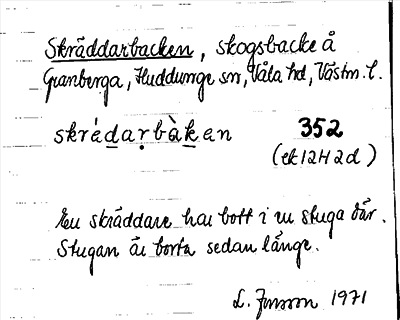 Skräddarbacken, skogsbacke å
Granberga, Huddunge sn, Våla hd, Västm. l.
skrédarbàkan 352
(ek 12H2d)
En skräddare har bott i en stuga där.
Stugan är borta sedan länge.
L. Jonsson 1971